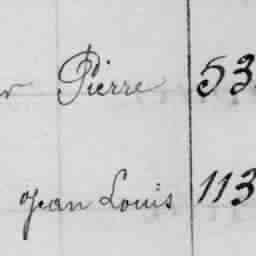 r Pierre 53
Jean Louis 113